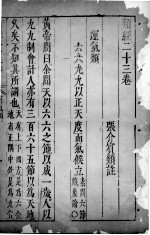 類經二十三卷
張介賓類註
運氣類
六六九九以正天度而氣候立素問六節藏象論
黃帝問曰余聞天以六六之節以成一歲人以
九九制會計人亦有三百六十五節以為天地
久矣不知其所謂也